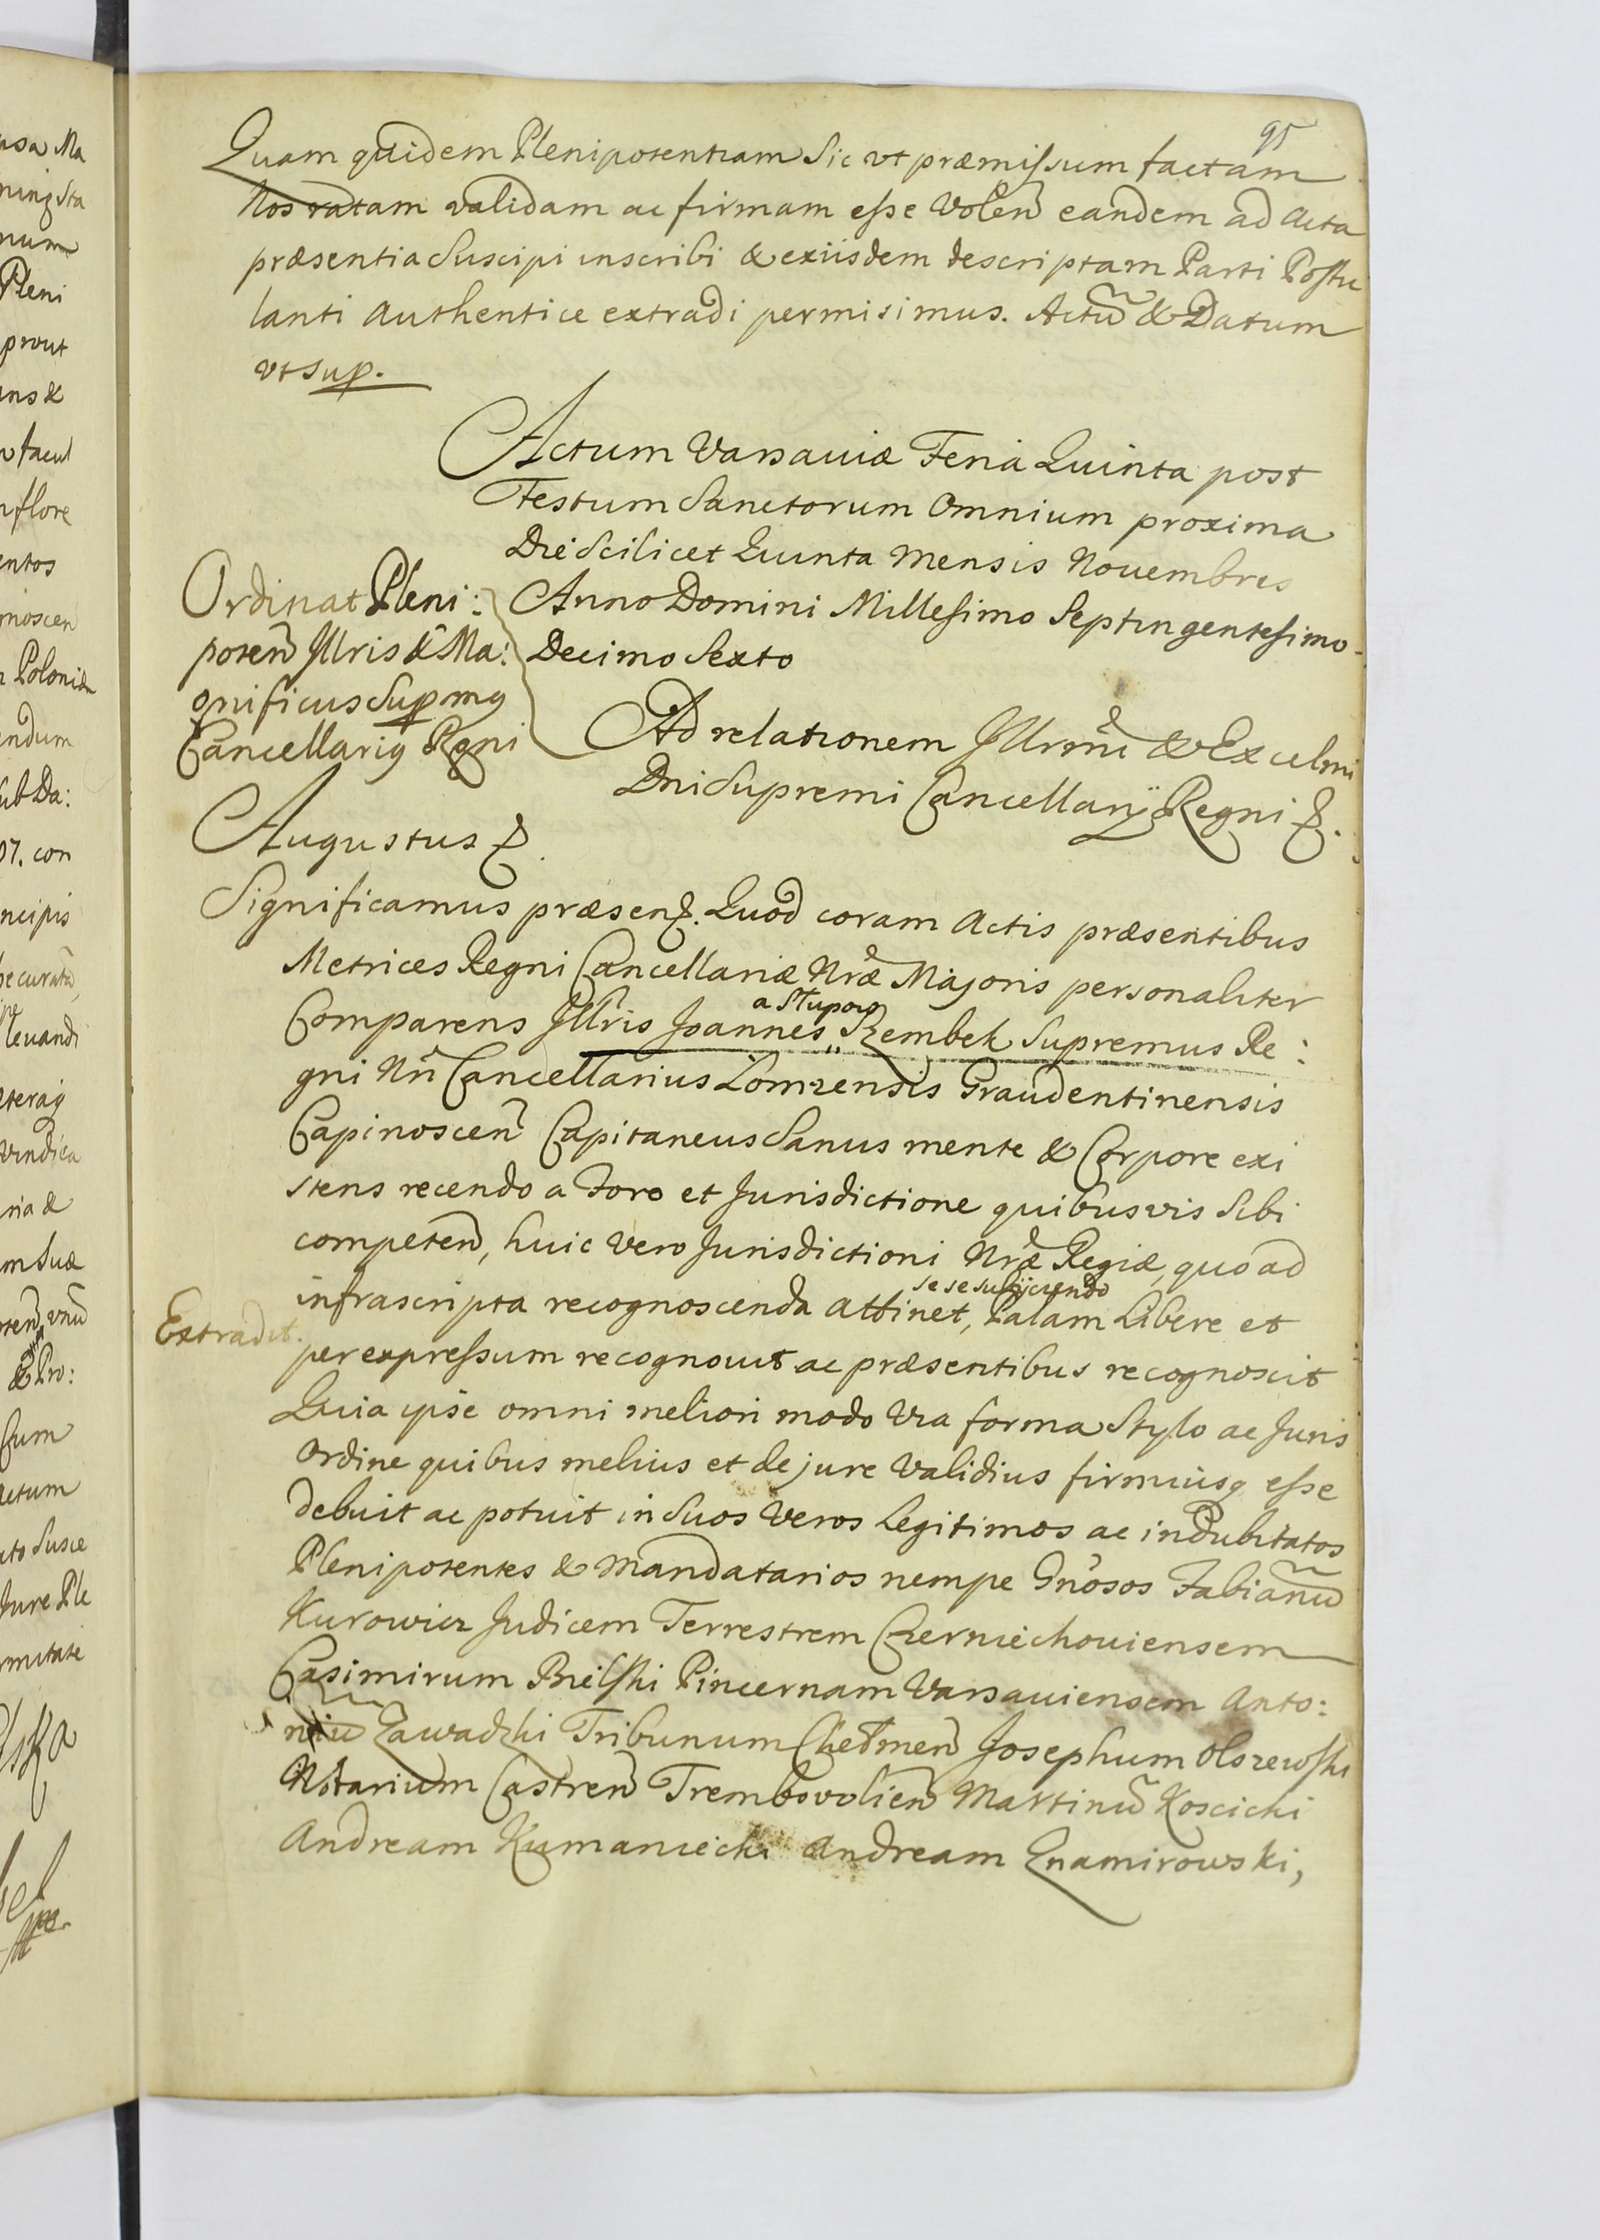 95
Quam quidem Plenipotentiam Sic vt præmissum factam
Nos ratam validam ac firmam esse Voleñ eandem ad Acta
præsentia Suscipi inscribi & exiisdem descriptam Parti Postu
lanti Authentice extradi permisimus. Actũ & Datum
vt sup.
Actum Varsauiæ Feria Quinta post
Festum Sanctorum Omnium proxima
Die Scilicet Quinta Mensis Nouembris
Anno Domini Millesimo Septingentesimo
Decimo Sexto
Ordinat Pleni:
poteñ Jllris & Ma:
gnificus Supmq
Cancellariq Rgni
Ad relationem Jllrmi & Excelmi
Dni Supremi Cancellarÿ Regni &.
Augustus &.
Significamus præsen&. Quod coram Actis præsentibus
Metrices Regni Cancellariæ Nræ Majoris personaliter
Comparens Jllris Joannes a Słupow Szembek Supremus Re:
gni Nri Cancellarius Lomzensis Graudentinensis
Capinosceñ Capitaneus Sanus mente & Corpore exi
stens recendo a Foro et Jurisdictione quibusvis Sibi
competeñ, huic vero Jurisdictioni Nræ Regiæ, quo ad
infrascripta recognoscenda attinet, se se subijciendo Palam Libere et
Extradit.
per expressum recognouit ac præsentibus recognoscit
Quia ipse omni meliori modo Via forma Stylo ac Juris
Ordine quibus melius et de jure Validius firmiusq esse
debuit ac potuit in Suos Veros Legitimos ac indubitatos
Plenipotentes & Mandatarios nempe Gnosos Fabianũ
Kurowicz Judicem Terrestrem Czerniechouiensem
Casimirum Bielski Pincernam Varsauiensem Anto:
niũ Zawadzki Tribunum Chełmeñ Josephum Olszewski
Notarium Castreñ Trembovolieñ Martinũ Koscicki
Andream Kumaniecki Andream Znamirowski,